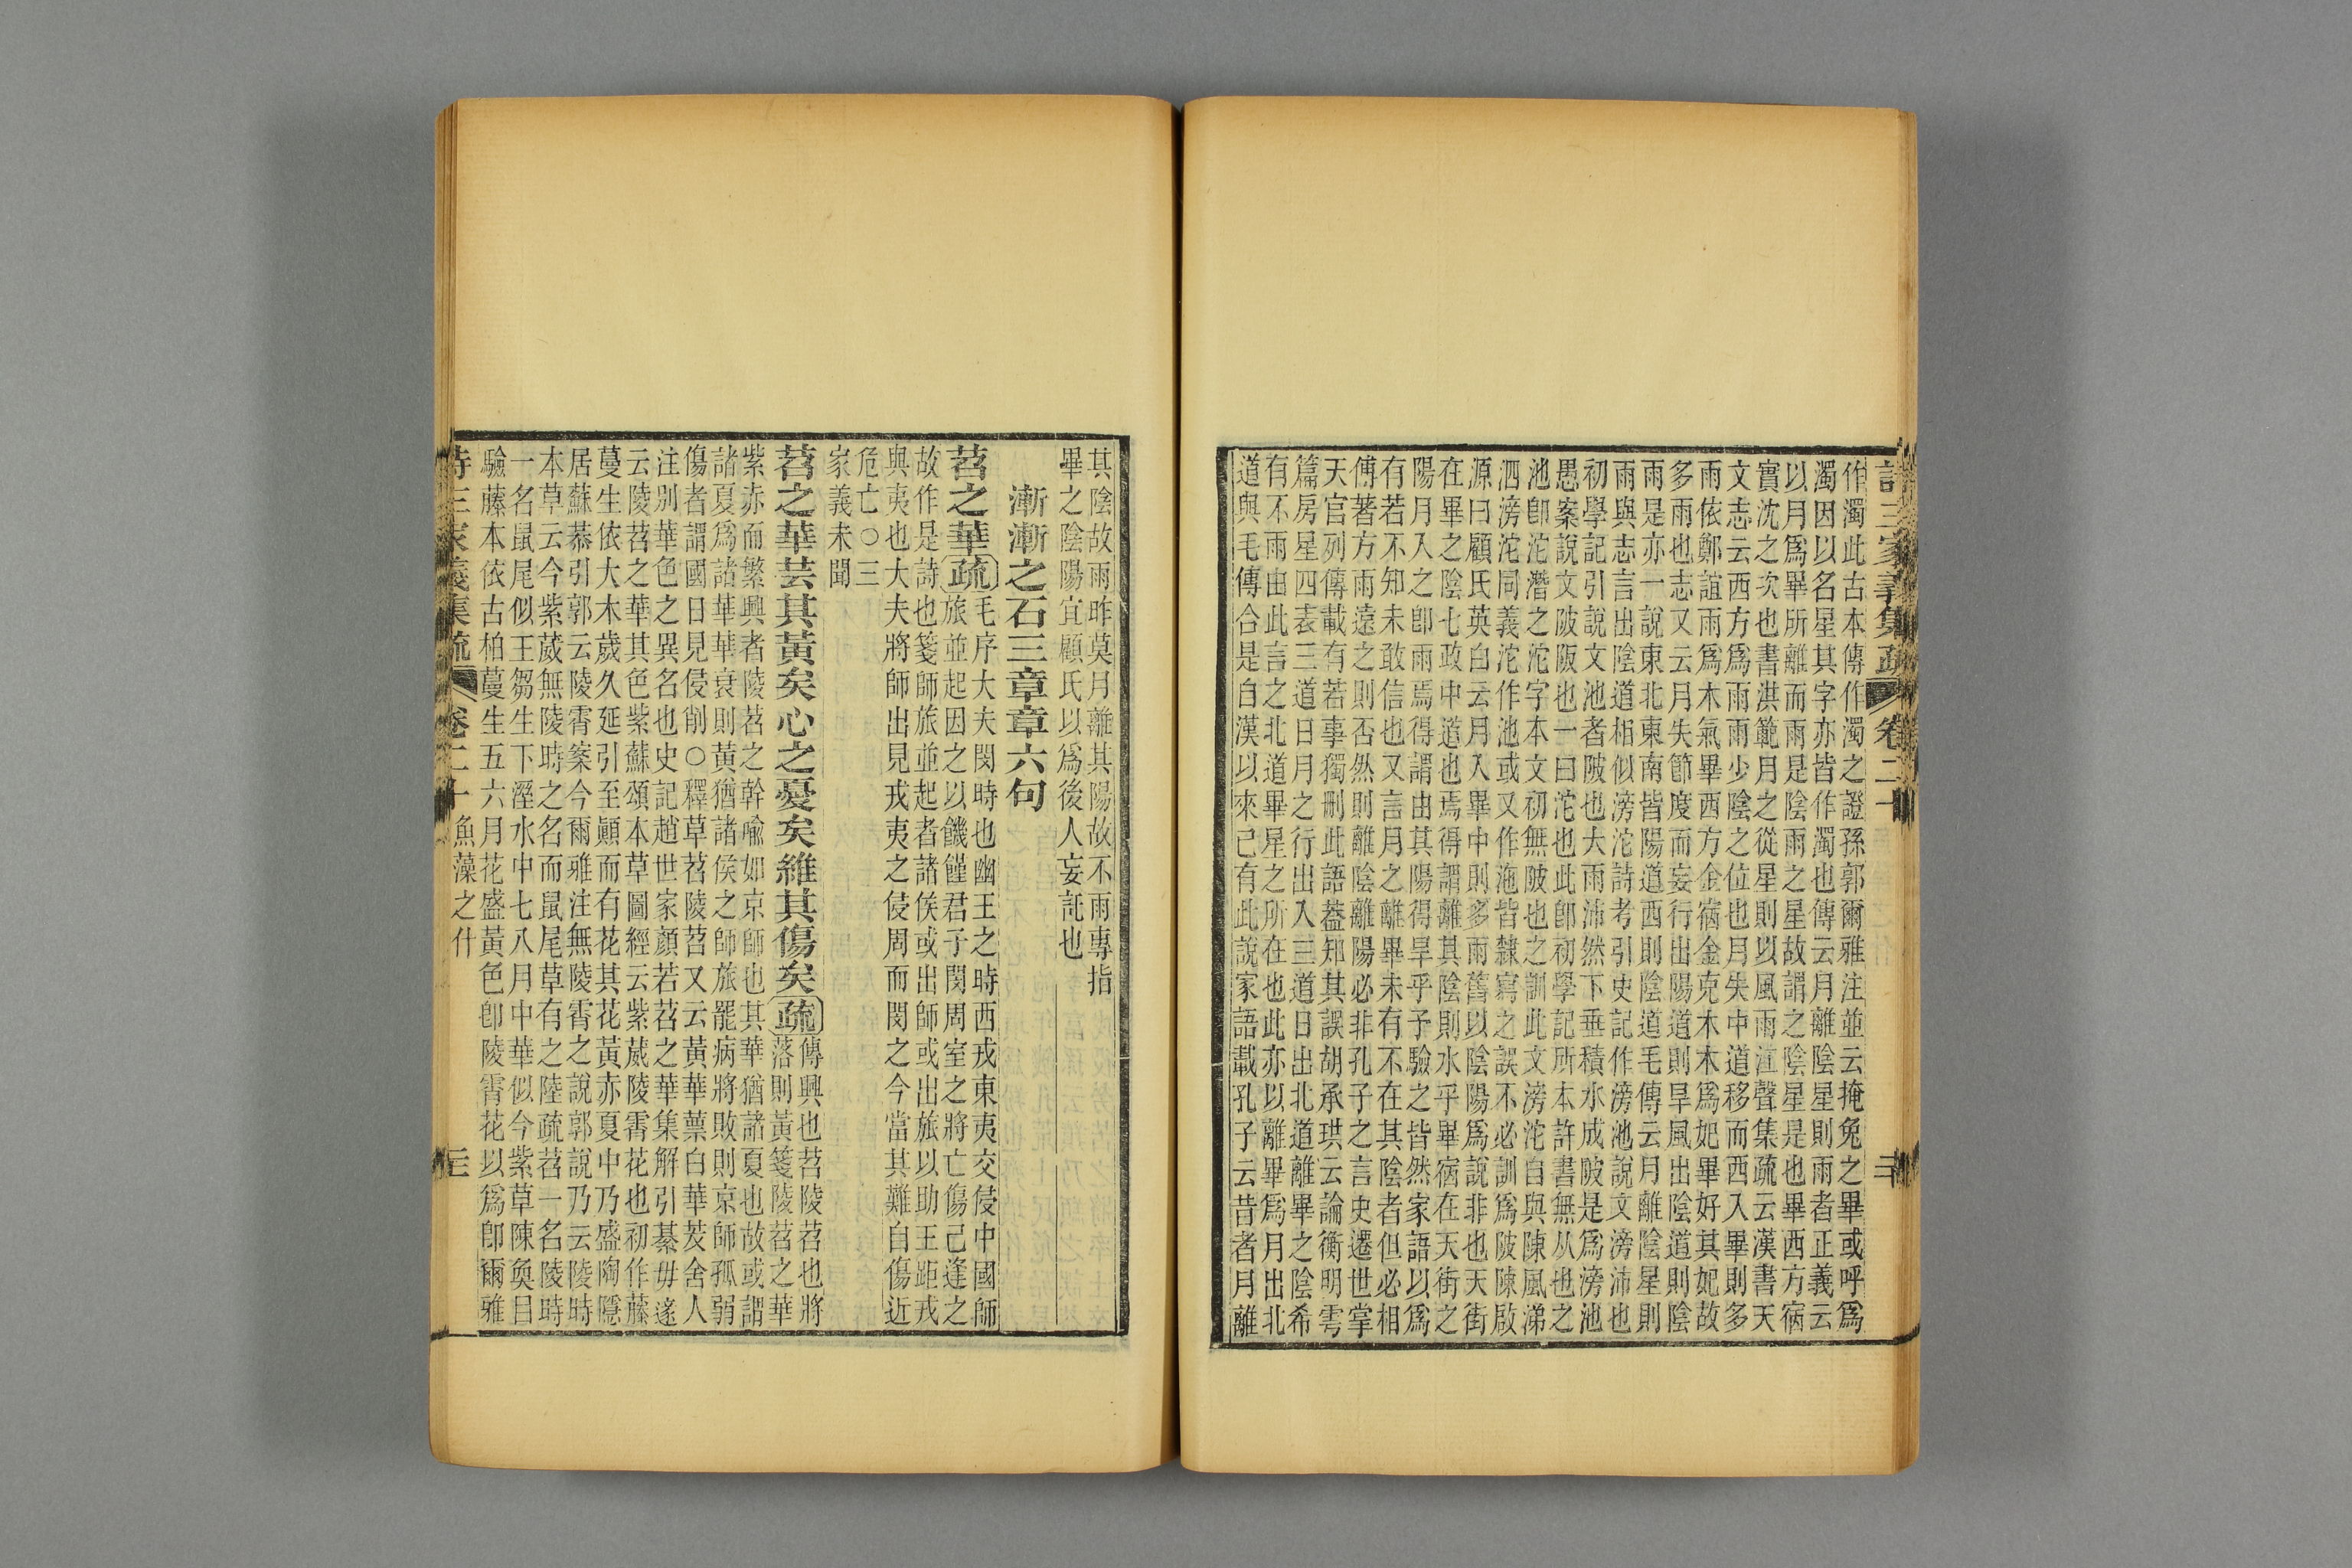 詩三家義集疏 卷二十
作濁此古本傳作濁之證孫郭爾雅注並云掩兔之畢或呼爲
濁因以名星其字亦皆作濁也傳云月離陰星則雨者正義云
以月爲畢所離而雨是陰雨之星故謂之陰星是也畢西方宿
實沈之次也書洪範月之從星則以風雨江聲集疏云漢書天
文志云西方爲雨雨少陰之位也月失中道移而西入畢則多
雨依鄭誼雨爲木氣畢西方金宿金克木木爲妃畢好其妃故
多雨也志又云月失節度而妄行出陽道則旱風出陰道則陰
雨是亦一說東北東南皆陽道西則陰道毛傳云月離陰星則
雨與志言出陰道相似滂沱詩考引史記作滂池說文滂沛也
初學記引說文池者陂也大雨沛然下垂積水成陂是爲滂池
愚案說文陂阪也一曰沱也此卽初學記所本許書無从也之
池卽沱潛之沱字本文初無陂也之訓此文滂沱自與陳風涕
泗滂沱同義沱作池或又作沲皆隸寫之誤不必訓爲陂陳啟
源曰顧氏英白云月入畢中則多雨舊以陰陽爲說非也天街
在畢之陰七政中道也焉得謂離其陰則水乎畢宿在天街之
陽月入之卽雨焉得謂由其陽得旱乎子驗之皆然家語以爲
有若不知未敢信也又言月之離畢未有不在其陰者但必相
傅著方雨遠之則否然則離陰離陽必非孔子之言史遷世掌
天官列傳載有若事獨刪此語葢知其誤胡承珙云論衡明雩
篇房星四表三道日月之行出入三道日出北道離畢之陰希
有不雨由此言之北道畢星之所在也此亦以離畢爲月出北
道與毛傳合是自漢以來已有此說家語載孔子云昔者月離
其陰故雨昨莫月離其陽故不雨專指
畢之陰陽宜顧氏以爲後人妄託也
漸漸之石三章章六句
苕之華疏毛序大夫閔時也幽王之時西戎東夷交侵中國師
旅並起因之以饑饉君子閔周室之將亡傷己逢之
故作是詩也箋師旅並起者諸侯或出師或出旅以助王距戎
與夷也大夫將師出見戎夷之侵周而閔之今當其難自傷近
危亡○三
家義未聞
苕之華芸其黃矣心之憂矣維其傷矣疏傳興也苕陵苕也將
落則黃箋陵苕之華
紫赤而繁興者陵苕之幹喻如京師也其華猶諸夏也故或謂
諸夏爲諸華華衰則黃猶諸侯之師旅罷病將敗則京師孤弱
傷者謂國日見侵削○釋草苕陵苕又云黃華蔈白華茇舍人
注別華色之異名也史記趙世家顏若苕之華集解引綦毋邃
云陵苕之華其色紫蘇頌本草圖經云紫葳陵霄花也初作藤
蔓生依大木歲久延引至顚而有花其花黃赤夏中乃盛陶隱
居蘇恭引郭云陵霄案今爾雅注無陵霄之說郭說乃云陵時
本草云今紫葳無陵時之名而鼠尾草有之陸疏苕一名陵時
一名鼠尾似王芻生下溼水中七八月中華似今紫草陳奐目
驗藤本依古柏蔓生五六月花盛黃色卽陵霄花以爲卽爾雅
詩三家義集疏 卷二十 魚藻之什